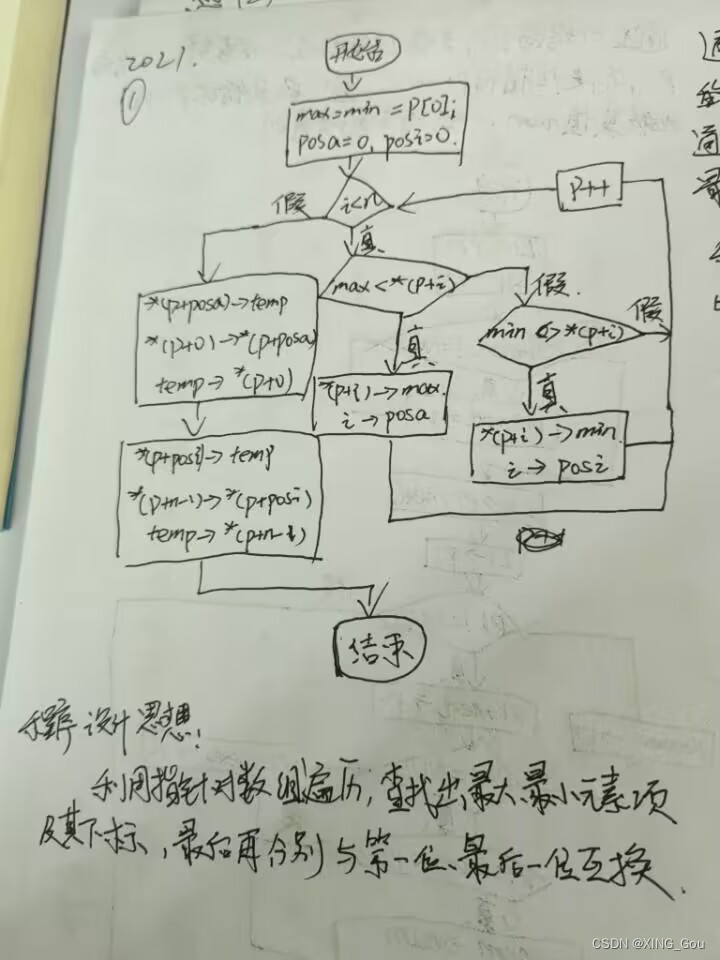 2021.
①
开始
max=min=P[0];
posa=0, posi=0.
i<n
假
真
P++
max<*(p+i)
假.
真
min>*(p+i)
假
真
*(p+posa)→temp
*(p+0)→*(p+posa)
temp→*(p+0)
*(p+i)→max.
i→posa
*(p+i)→min.
i→posi
*(p+posi)→temp
*(p+n-1)→*(p+posi)
temp→*(p+n-1)
结束
程序设计思想:
利用指针对数组遍历,查找出最大、最小元素项
及其下标,最后再分别与第一位、最后一位互换.
CSDN @XING_Gou